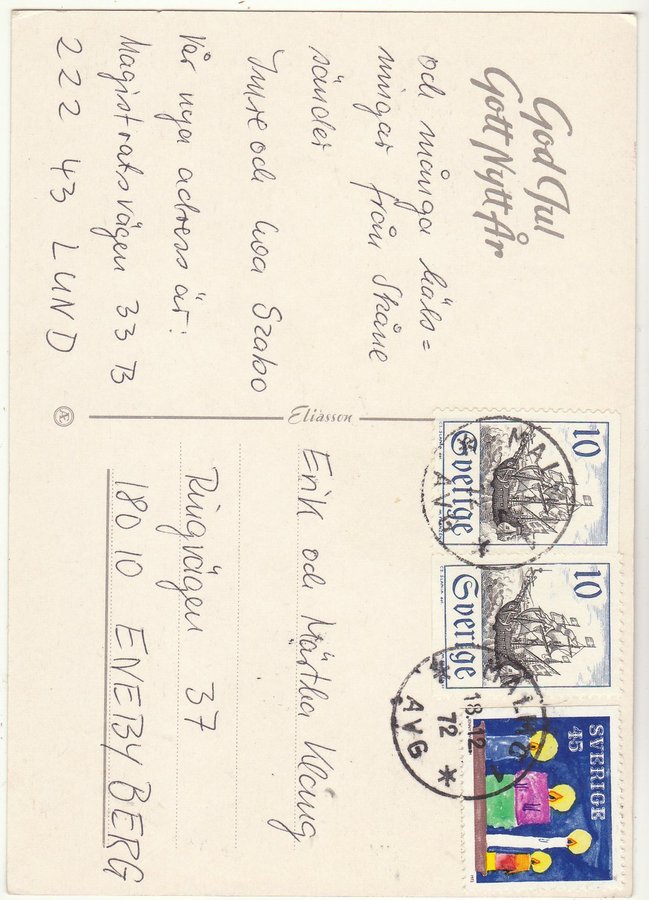 God Jul
Gott Nytt År
och många häls=
ningar från Skåne
sänder
Imre och Eva Szabo
Vår nya adress är:
Magistratsvägen 33 B
222 43 LUND
Æ
Eliasson
Erik och Märtha Klang
Ringvägen 37
180 10 ENEBYBERG
10
Sverige
10
Sverige
SVERIGE
45
MALMÖ
AVG
MALMÖ 1
18.12
72
AVG